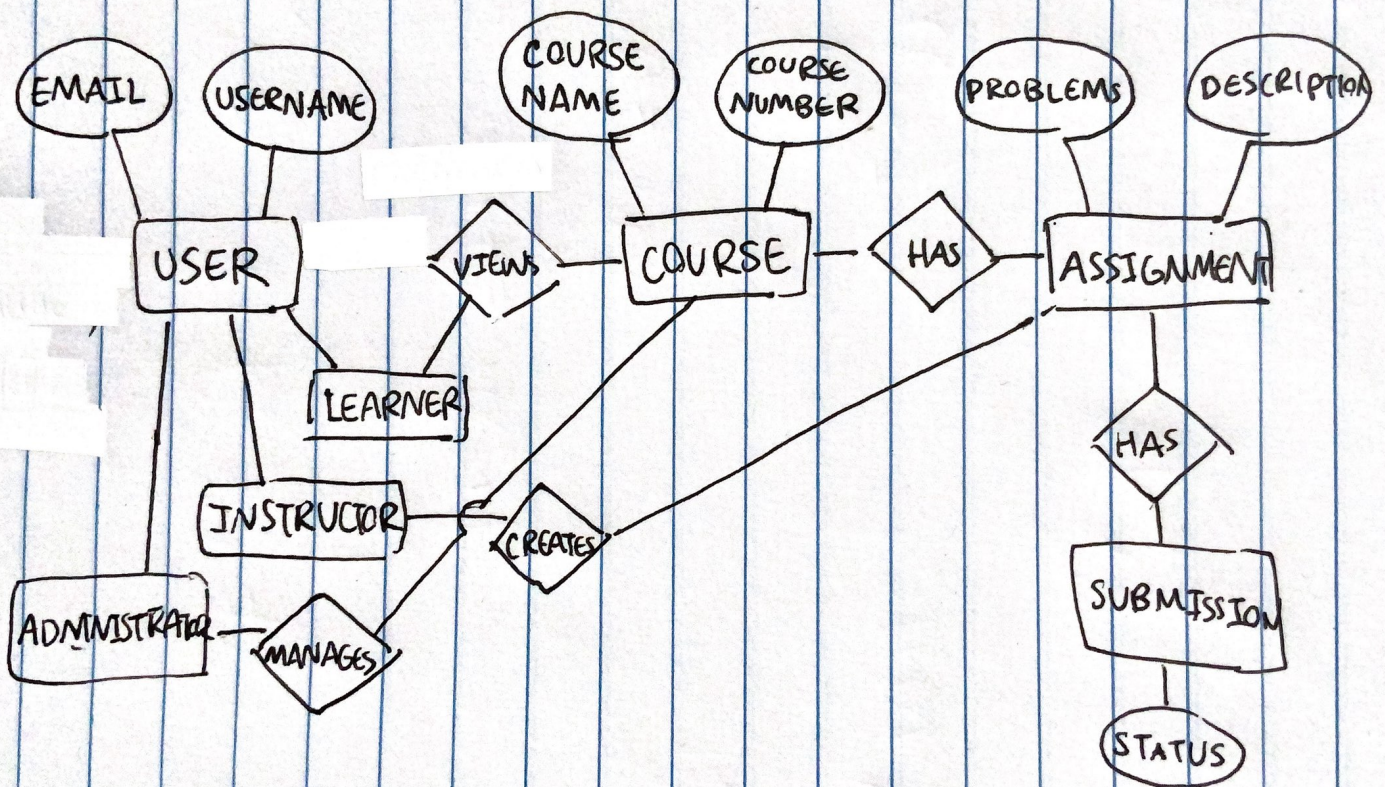 EMAIL
USERNAME
COURSE
NAME
COURSE
NUMBER
PROBLEMS
DESCRIPTION
USER
VIEWS
COURSE
HAS
ASSIGNMENT
LEARNER
HAS
INSTRUCTOR
CREATES
SUBMISSION
ADMINISTRATOR
MANAGES
STATUS